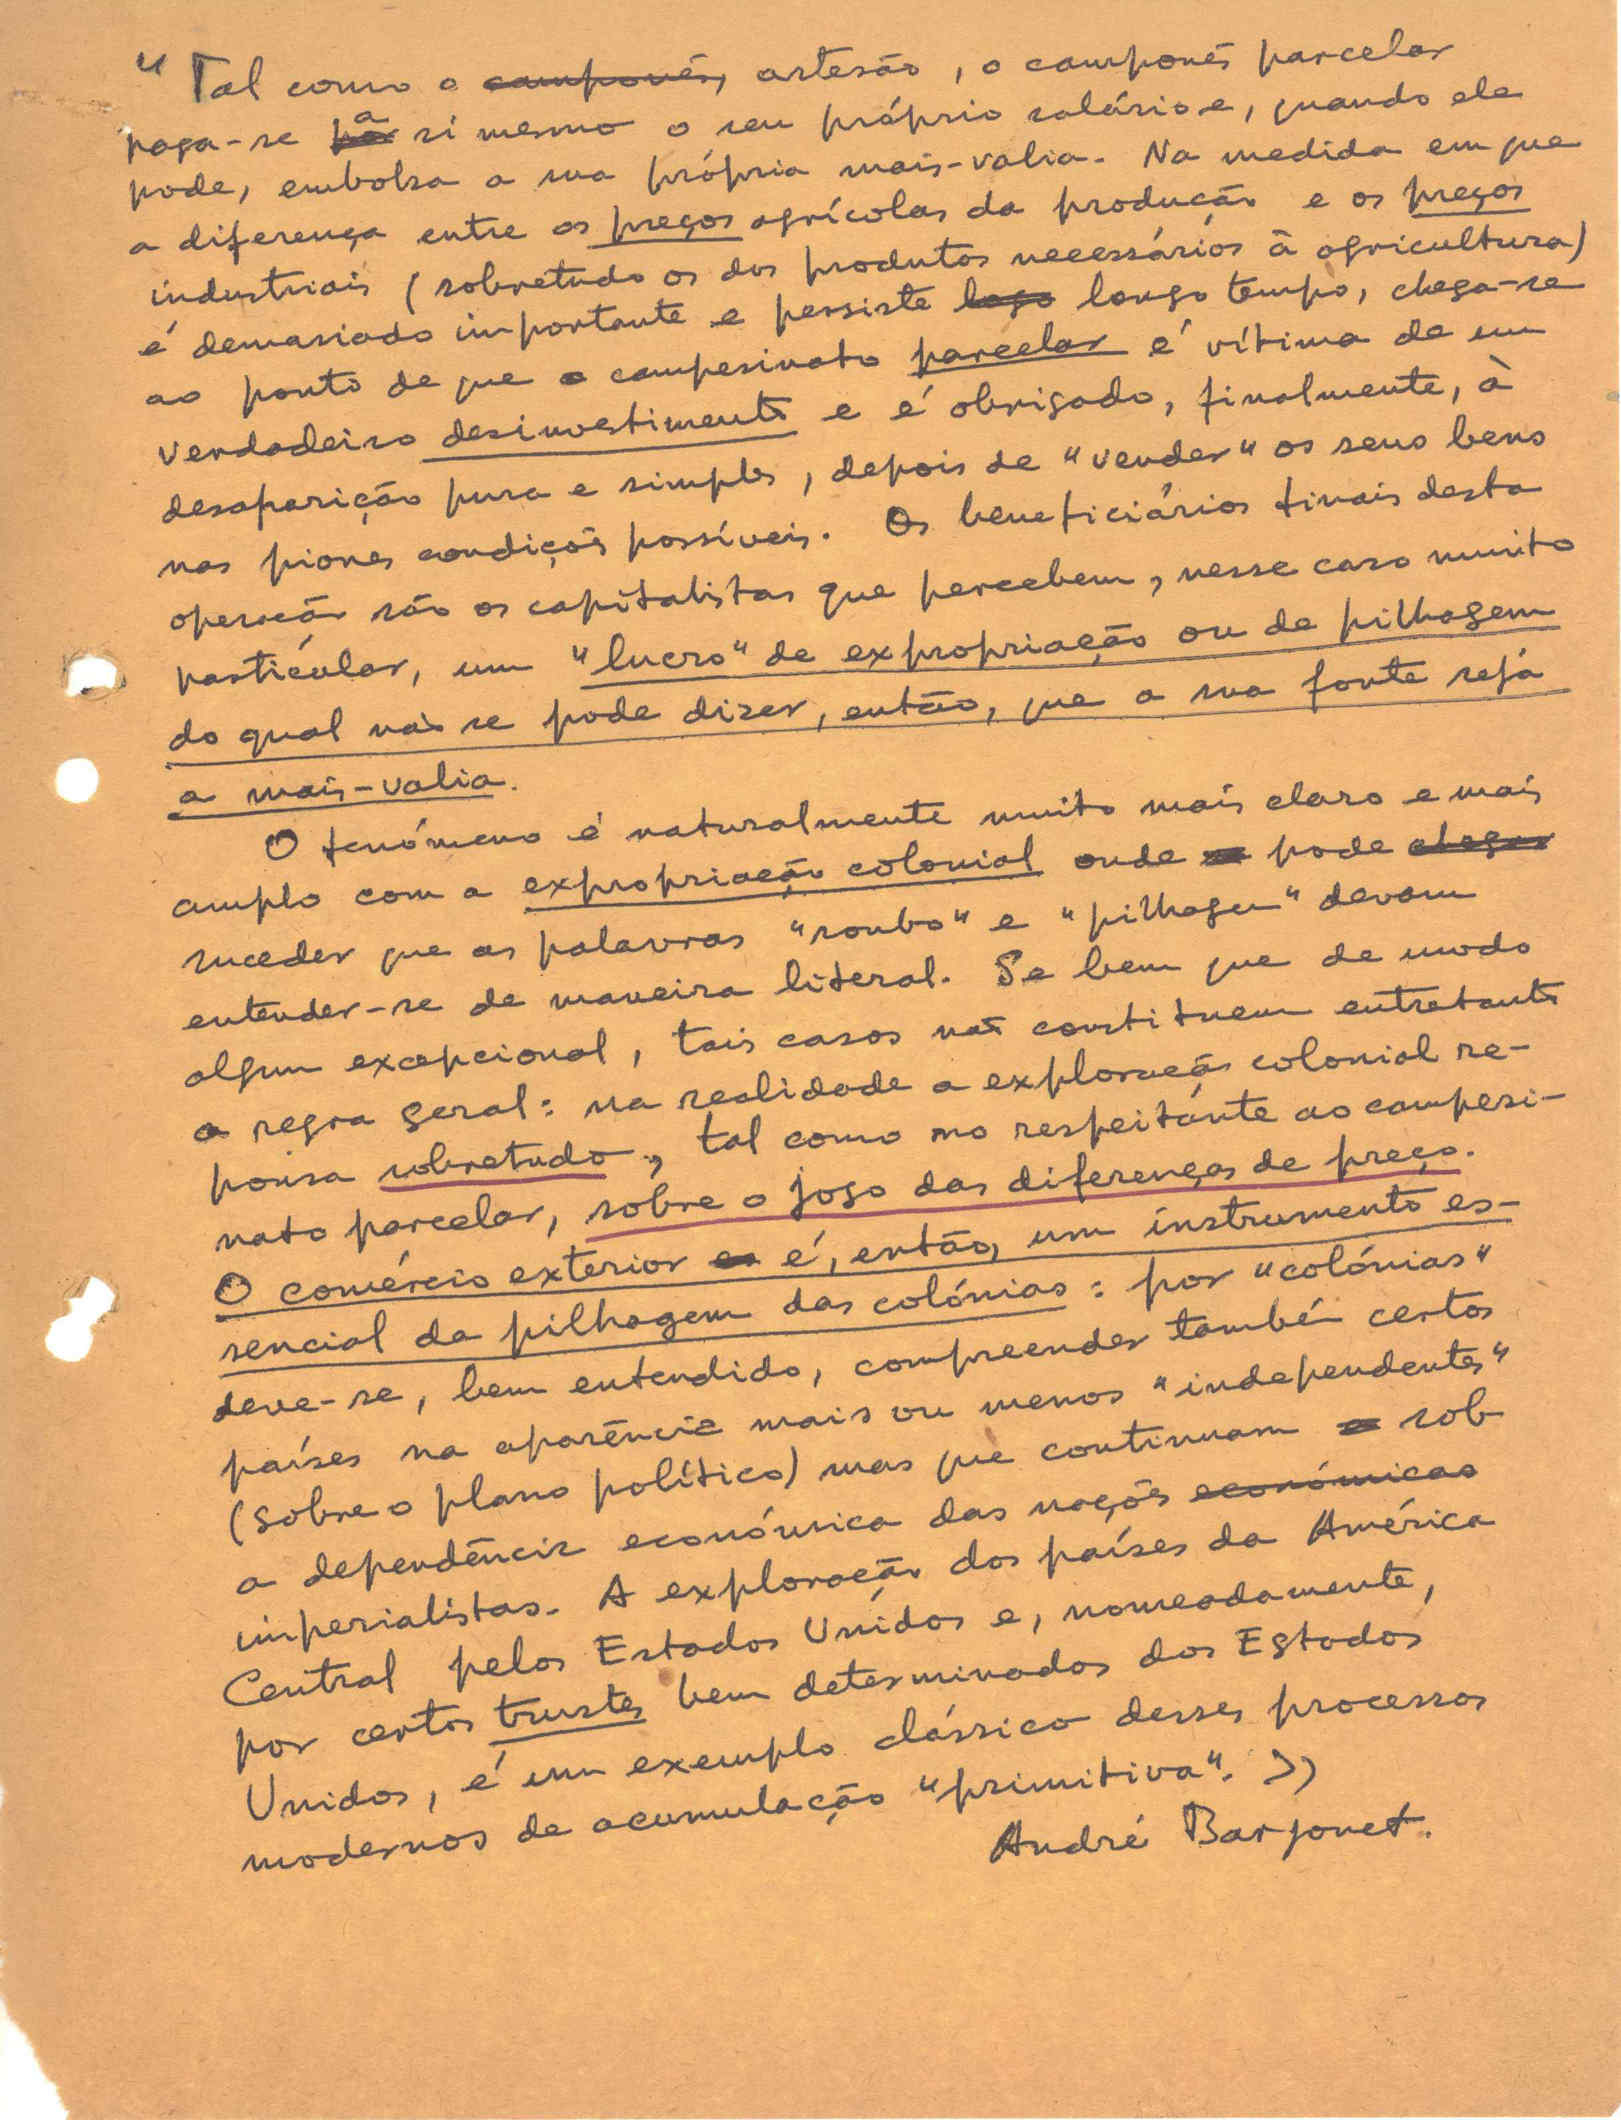 "Tal como o camponês, artesão, o camponês parcelar
paga-se por a si mesmo o seu próprio salário e, quando ele
pode, embolsa a sua própria mais-valia. Na medida em que
a diferença entre os preços agrícolas da produção e os preços
industriais (sobretudo os dos produtos necessários à agricultura)
é demasiado importante e persiste logo longo tempo, chega-se
ao ponto de que o campesinato parcelar é vítima de um
verdadeiro desinvestimento e é obrigado, finalmente, à
desaparição pura e simples, depois de "vender" os seus bens
nas piores condições possíveis. Os beneficiários finais desta
operação são os capitalistas que percebem, nesse caso muito
particular, um "lucro" de expropriação ou de pilhagem
do qual não se pode dizer, então, que a sua fonte seja
a mais-valia.
O fenómeno é naturalmente muito mais claro e mais
amplo com a expropriação colonial onde pode chegar
suceder que as palavras "roubo" e "pilhagem" devam
entender-se de maneira literal. Se bem que de modo
algum excepcional, tais casos não constituem entretanto
a regra geral: na realidade a exploração colonial re-
pousa sobretudo, tal como no respeitante ao campesi-
nato parcelar, sobre o jogo das diferenças de preço.
O comércio exterior é, então, um instrumento es-
sencial da pilhagem das colónias: por "colónias"
deve-se, bem entendido, compreender também certos
países na aparência mais ou menos "independentes"
(sobre o plano político) mas que continuam sob
a dependência económica das nações económicas
imperialistas. A exploração dos países da América
Central pelos Estados Unidos e, nomeadamente,
por certos trustes bem determinados dos Estados
Unidos, é um exemplo clássico desses processos
modernos de acumulação "primitiva". »
André Barjonet.